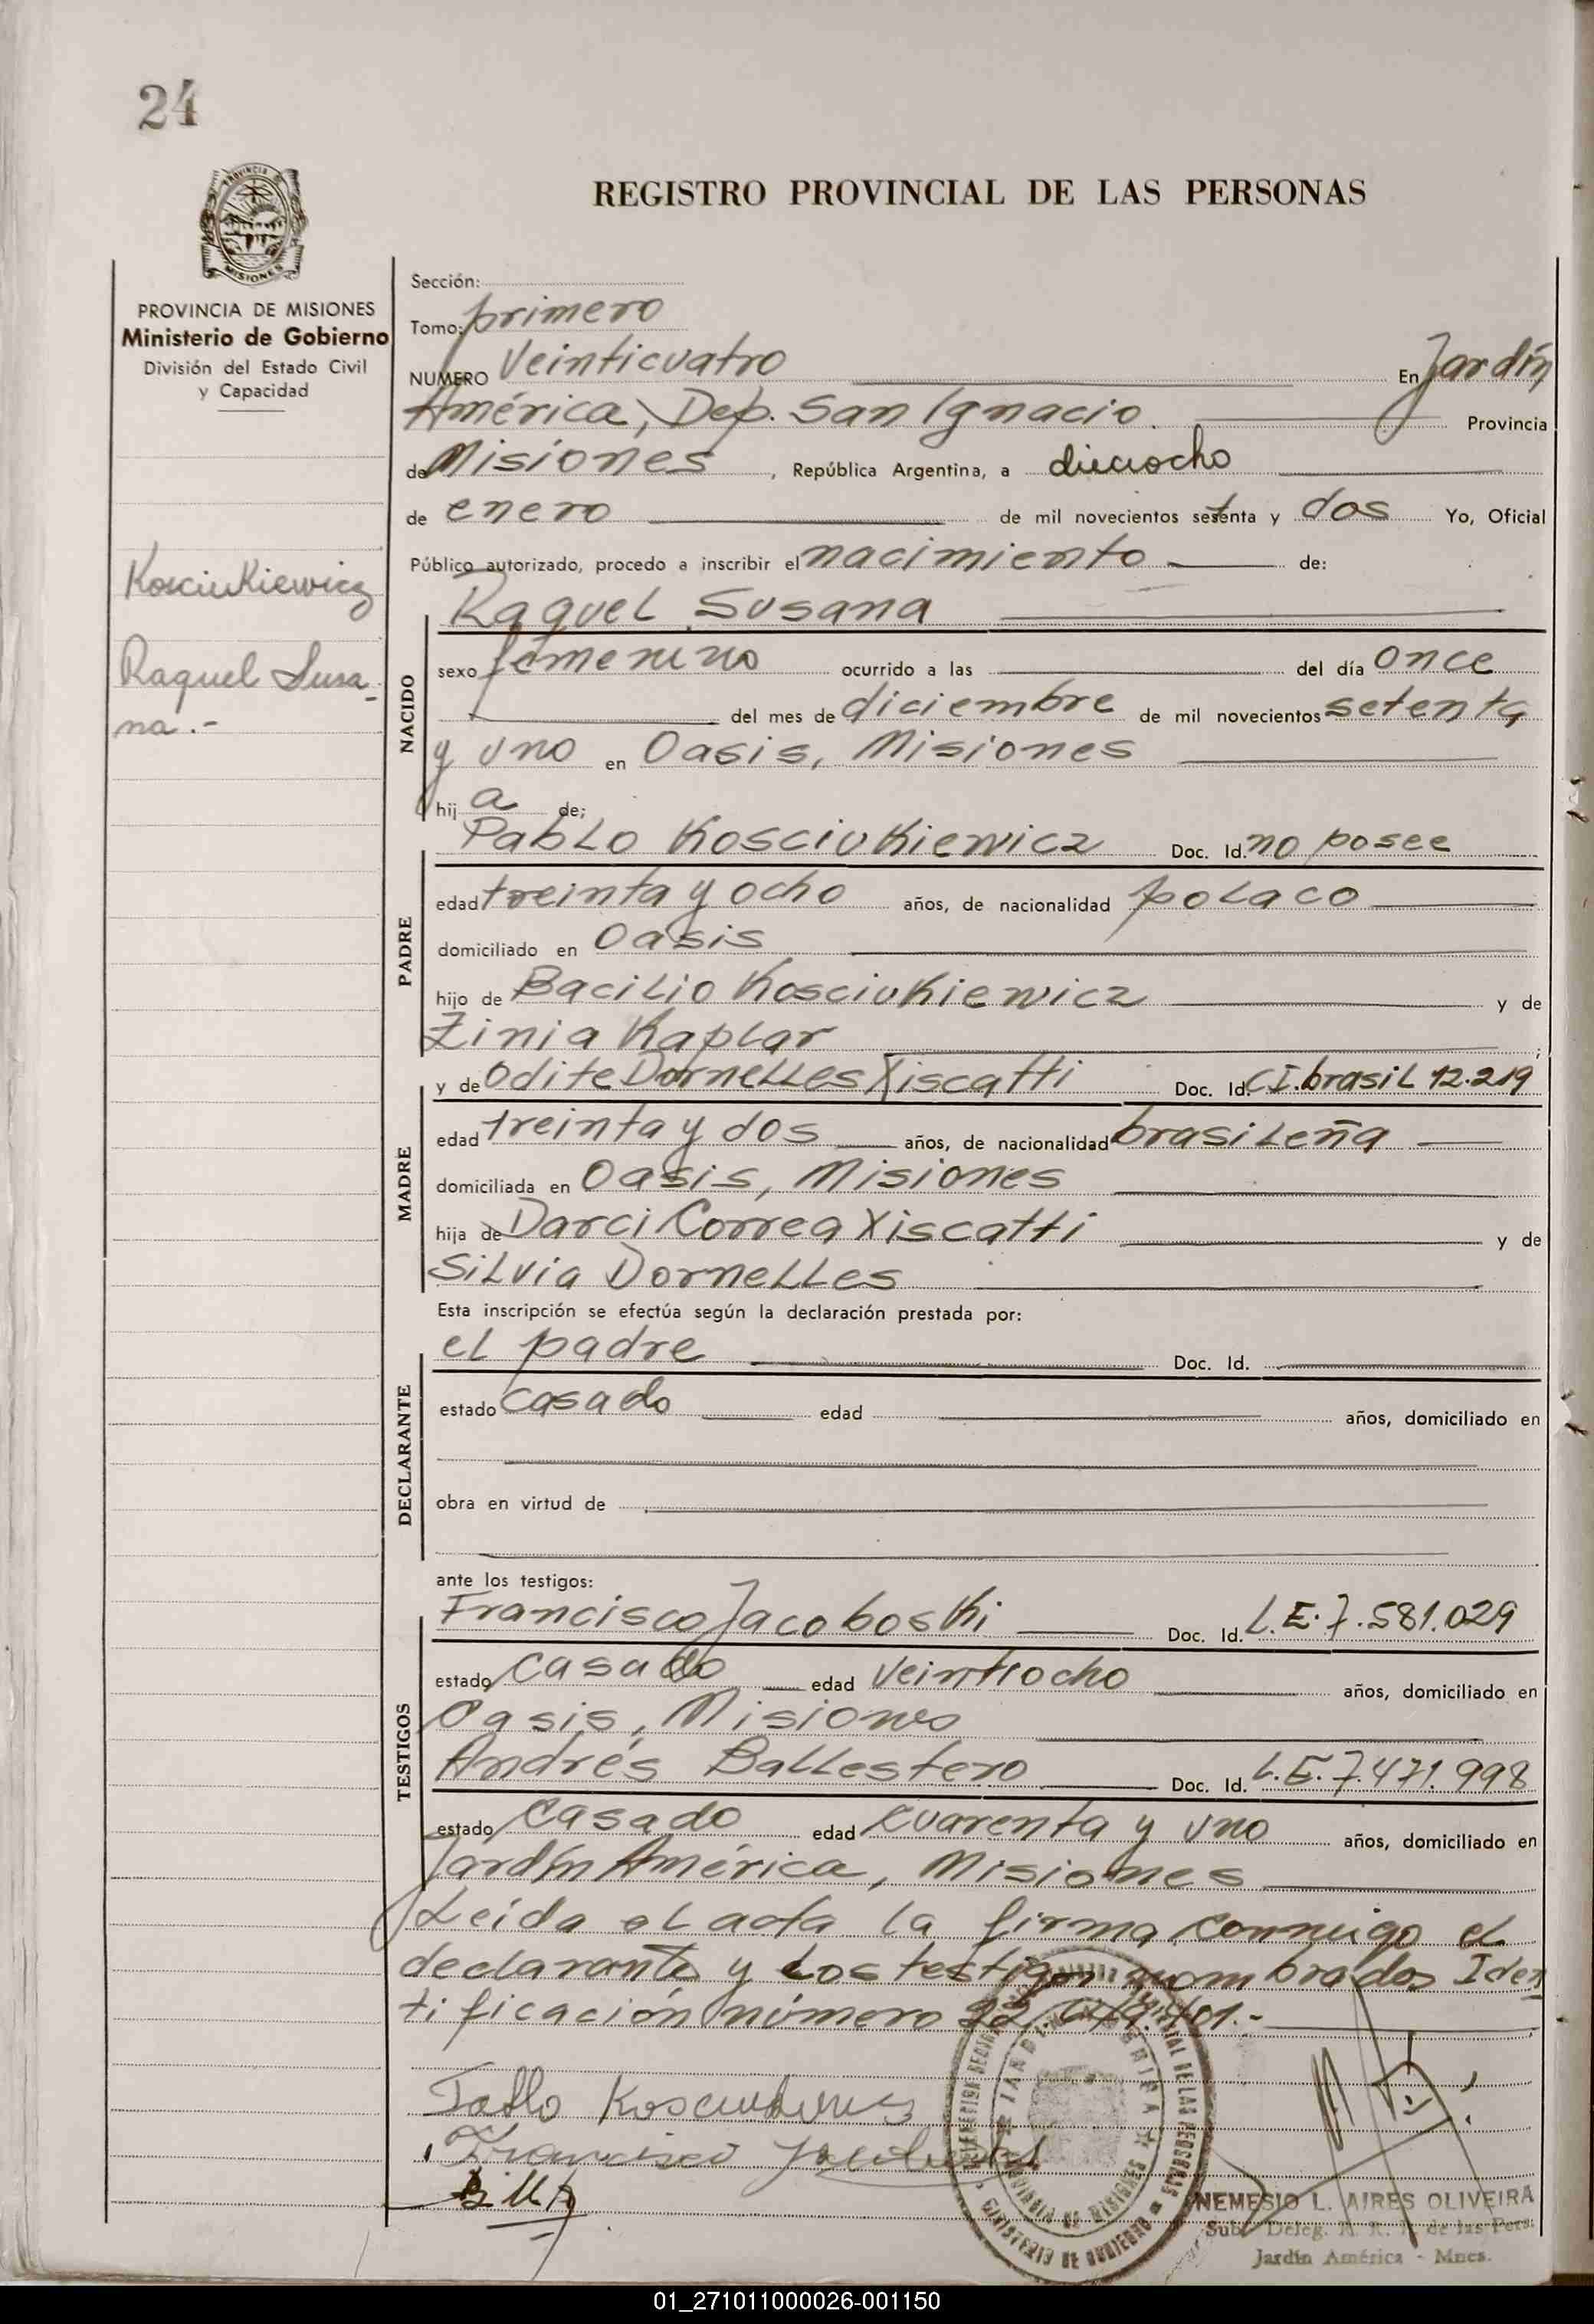 24
PROVINCIA
MISIONES
REGISTRO PROVINCIAL DE LAS PERSONAS
PROVINCIA DE MISIONES
Ministerio de Gobierno
División del Estado Civil
y Capacidad
Kosciukiewicz
Raquel Susa-
na.-
Sección:
Tomo: primero
NUMERO Veinticuatro En Jardín
América, Dep. San Ignacio. Provincia
de Misiones, República Argentina, a dieciocho
de enero de mil novecientos setenta y dos Yo, Oficial
Público autorizado, procedo a inscribir el nacimiento de:
Raquel Susana
NACIDO
sexo femenino ocurrido a las del día once
del mes de diciembre de mil novecientos setenta
y uno en Oasis, Misiones
hij a de;
PADRE
Pablo Kosciukiewicz Doc. Id. no posee
edad treinta y ocho años, de nacionalidad polaco
domiciliado en Oasis
hijo de Bacilio Kosciukiewicz y de
Zinia Kaplar;
MADRE
y de Odite Dornelles Xiscatti Doc. Id. C.I. brasil 12.219
edad treinta y dos años, de nacionalidad brasileña
domiciliada en Oasis, Misiones
hija de Darci Correa Xiscatti y de
Silvia Dornelles
Esta inscripción se efectúa según la declaración prestada por:
DECLARANTE
el padre Doc. Id.
estado casado edad años, domiciliado en
obra en virtud de
ante los testigos:
TESTIGOS
Francisco Jacoboski Doc. Id. L.E. 7.581.029
estado casado edad veintiocho años, domiciliado en
Oasis, Misiones
Andrés Ballestero Doc. Id. L.E. 7.471.998
estado casado edad cuarenta y uno años, domiciliado en
Jardín América, Misiones
Leída el acta la firma conmigo el
declarante y los testigos nombrados Iden
tificación número 22.
Pablo
Francisco
JARDIN AMERICA
PROVINCIA DE MISIONES
MINISTERIO DE GOBIERNO
NEMESIO L. AIRES OLIVEIRA
Sub Deleg. R. P. de las Pers.
Jardín América - Mnes.
01_271011000026-001150